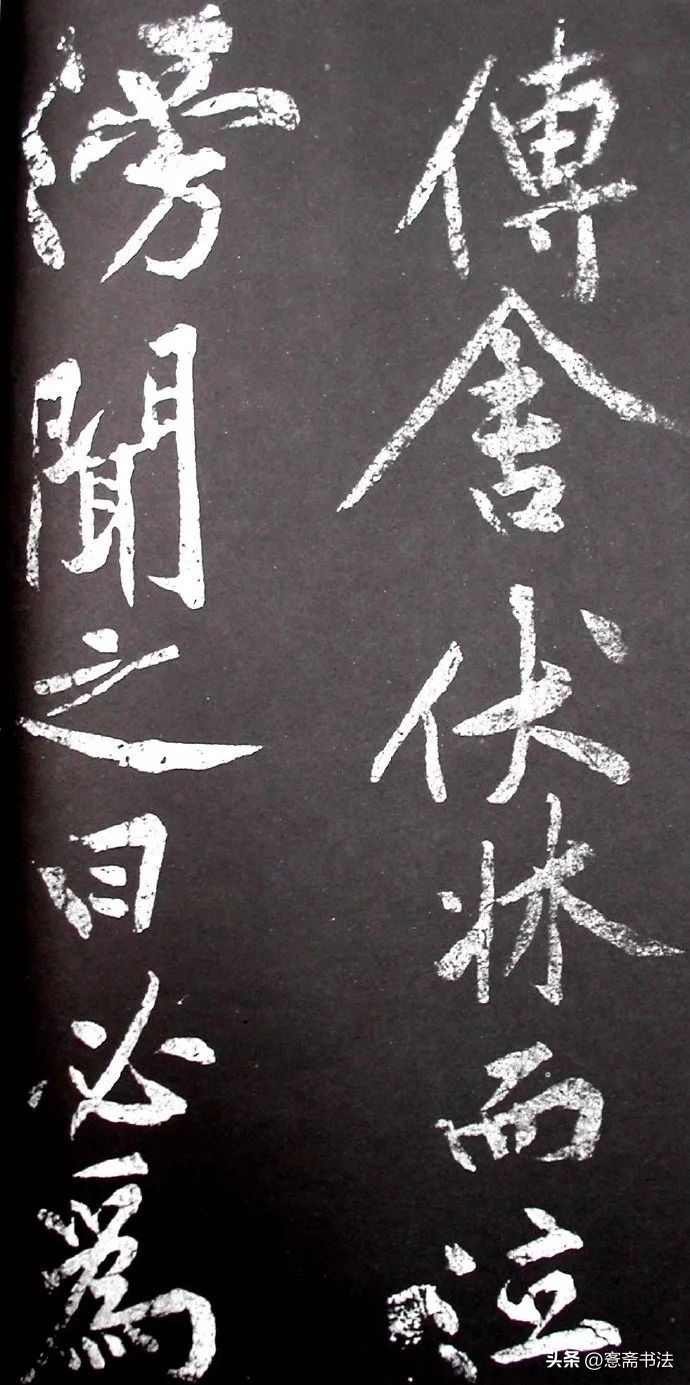 傳舍伏牀而泣
傍聞之曰必為
头条@窓斋书法